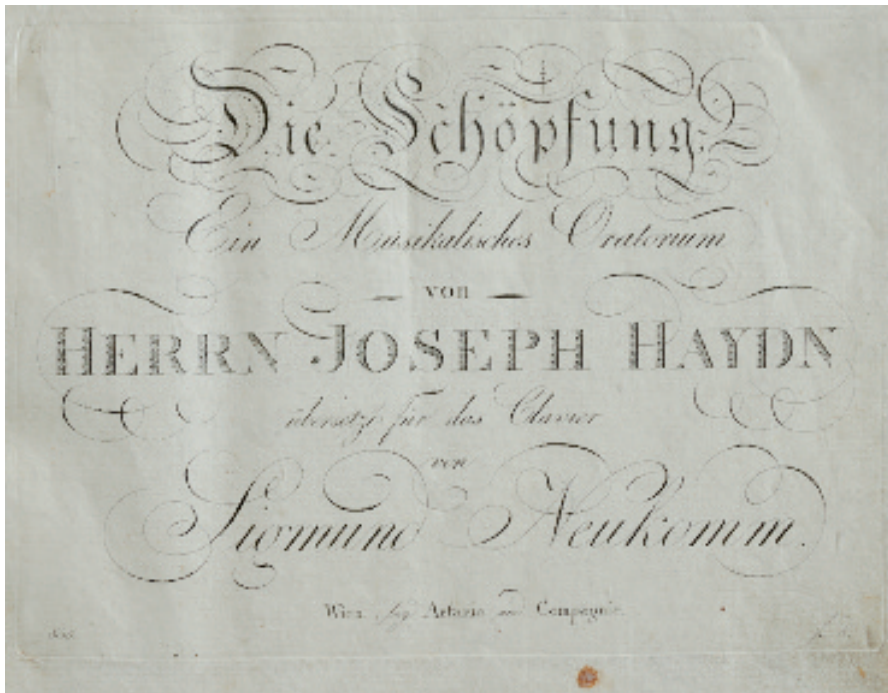 Die Schöpfung.
Ein Musikalisches Oratorium
von
HERRN JOSEPH HAYDN
übersetzt für das Clavier
von
Sigmund Neukomm.
Wien bey Artaria und Compagnie.